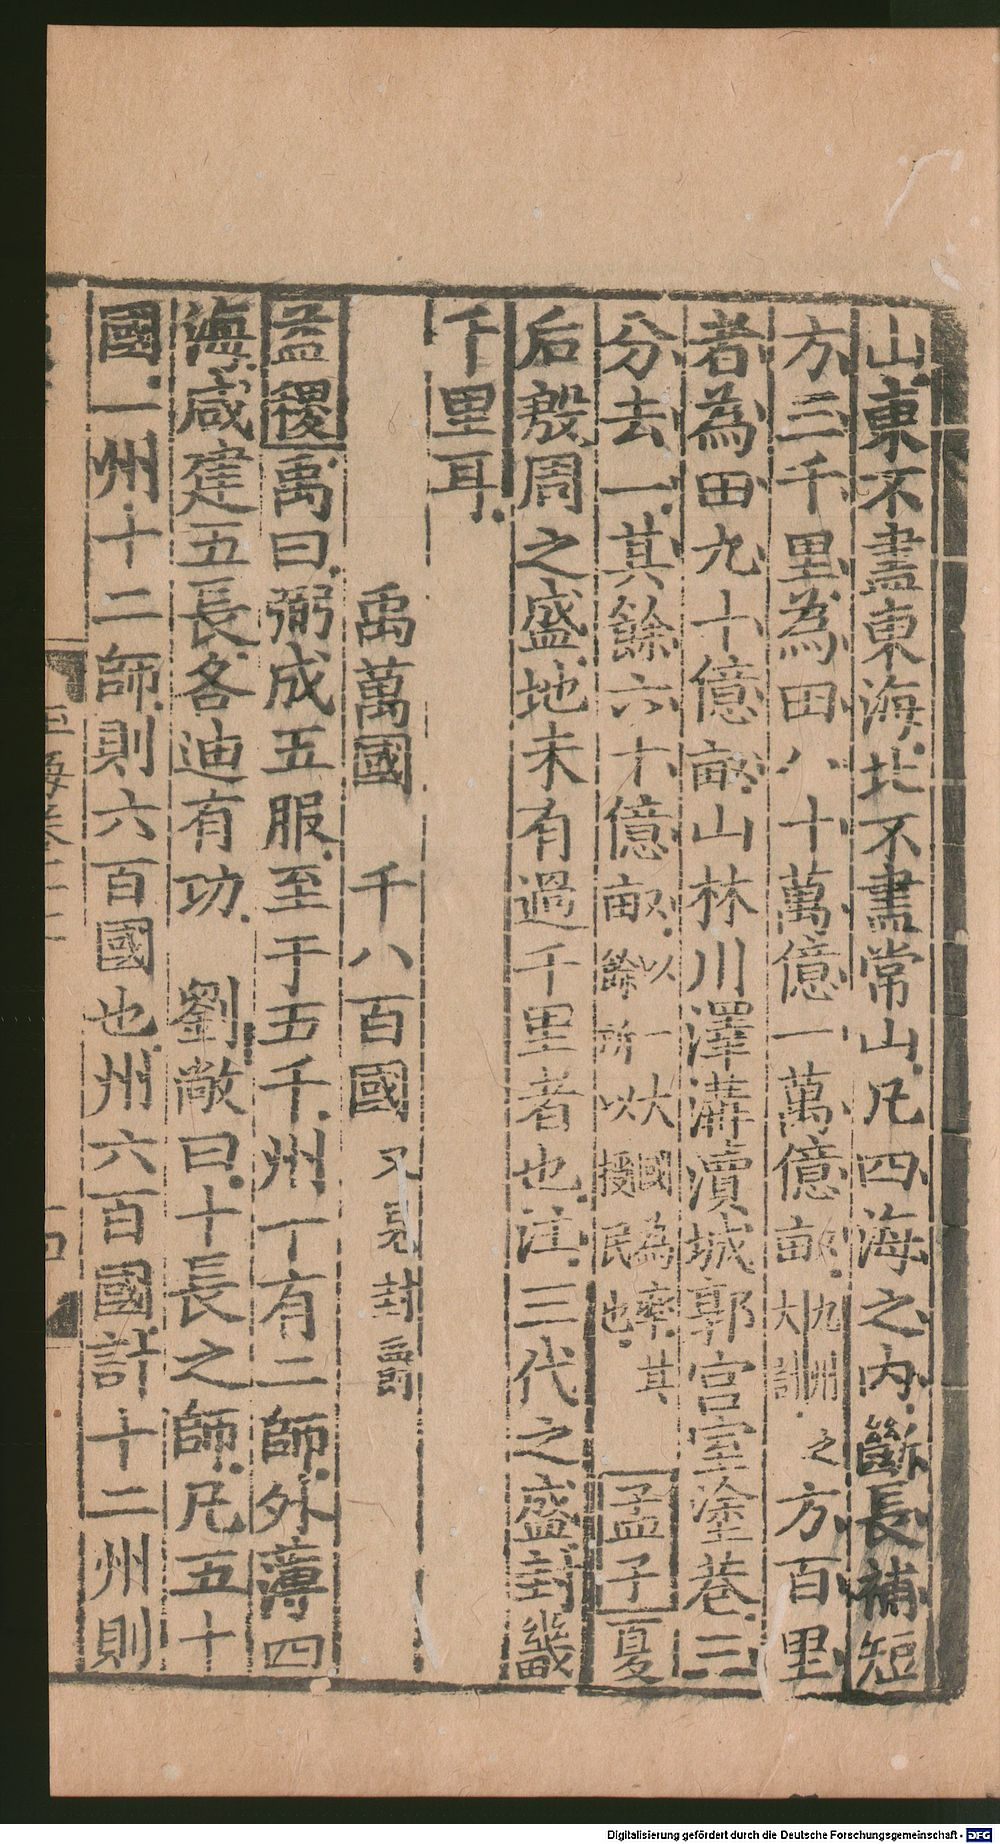 山東不盡東海北不盡常山凡四海之内斷長補短
方三千里為田八十萬億一萬億畝九州之大計方百里
者為田九十億畝山林川澤溝瀆城郭宫室塗巷三
分去一其餘六十億畝以一大國為率其餘所以授民也孟子夏
后殷周之盛地未有過千里者也注三代之盛封畿
千里耳
禹萬國 千八百國又見封爵
益稷禹曰弼成五服至于五千州十有二師外薄四
海咸建五長各迪有功 劉敞曰十長之師凡五十
國一州十二師則六百國也州六百國計十二州則
Digitalisierung gefördert durch die Deutsche Forschungsgemeinschaft - DFG